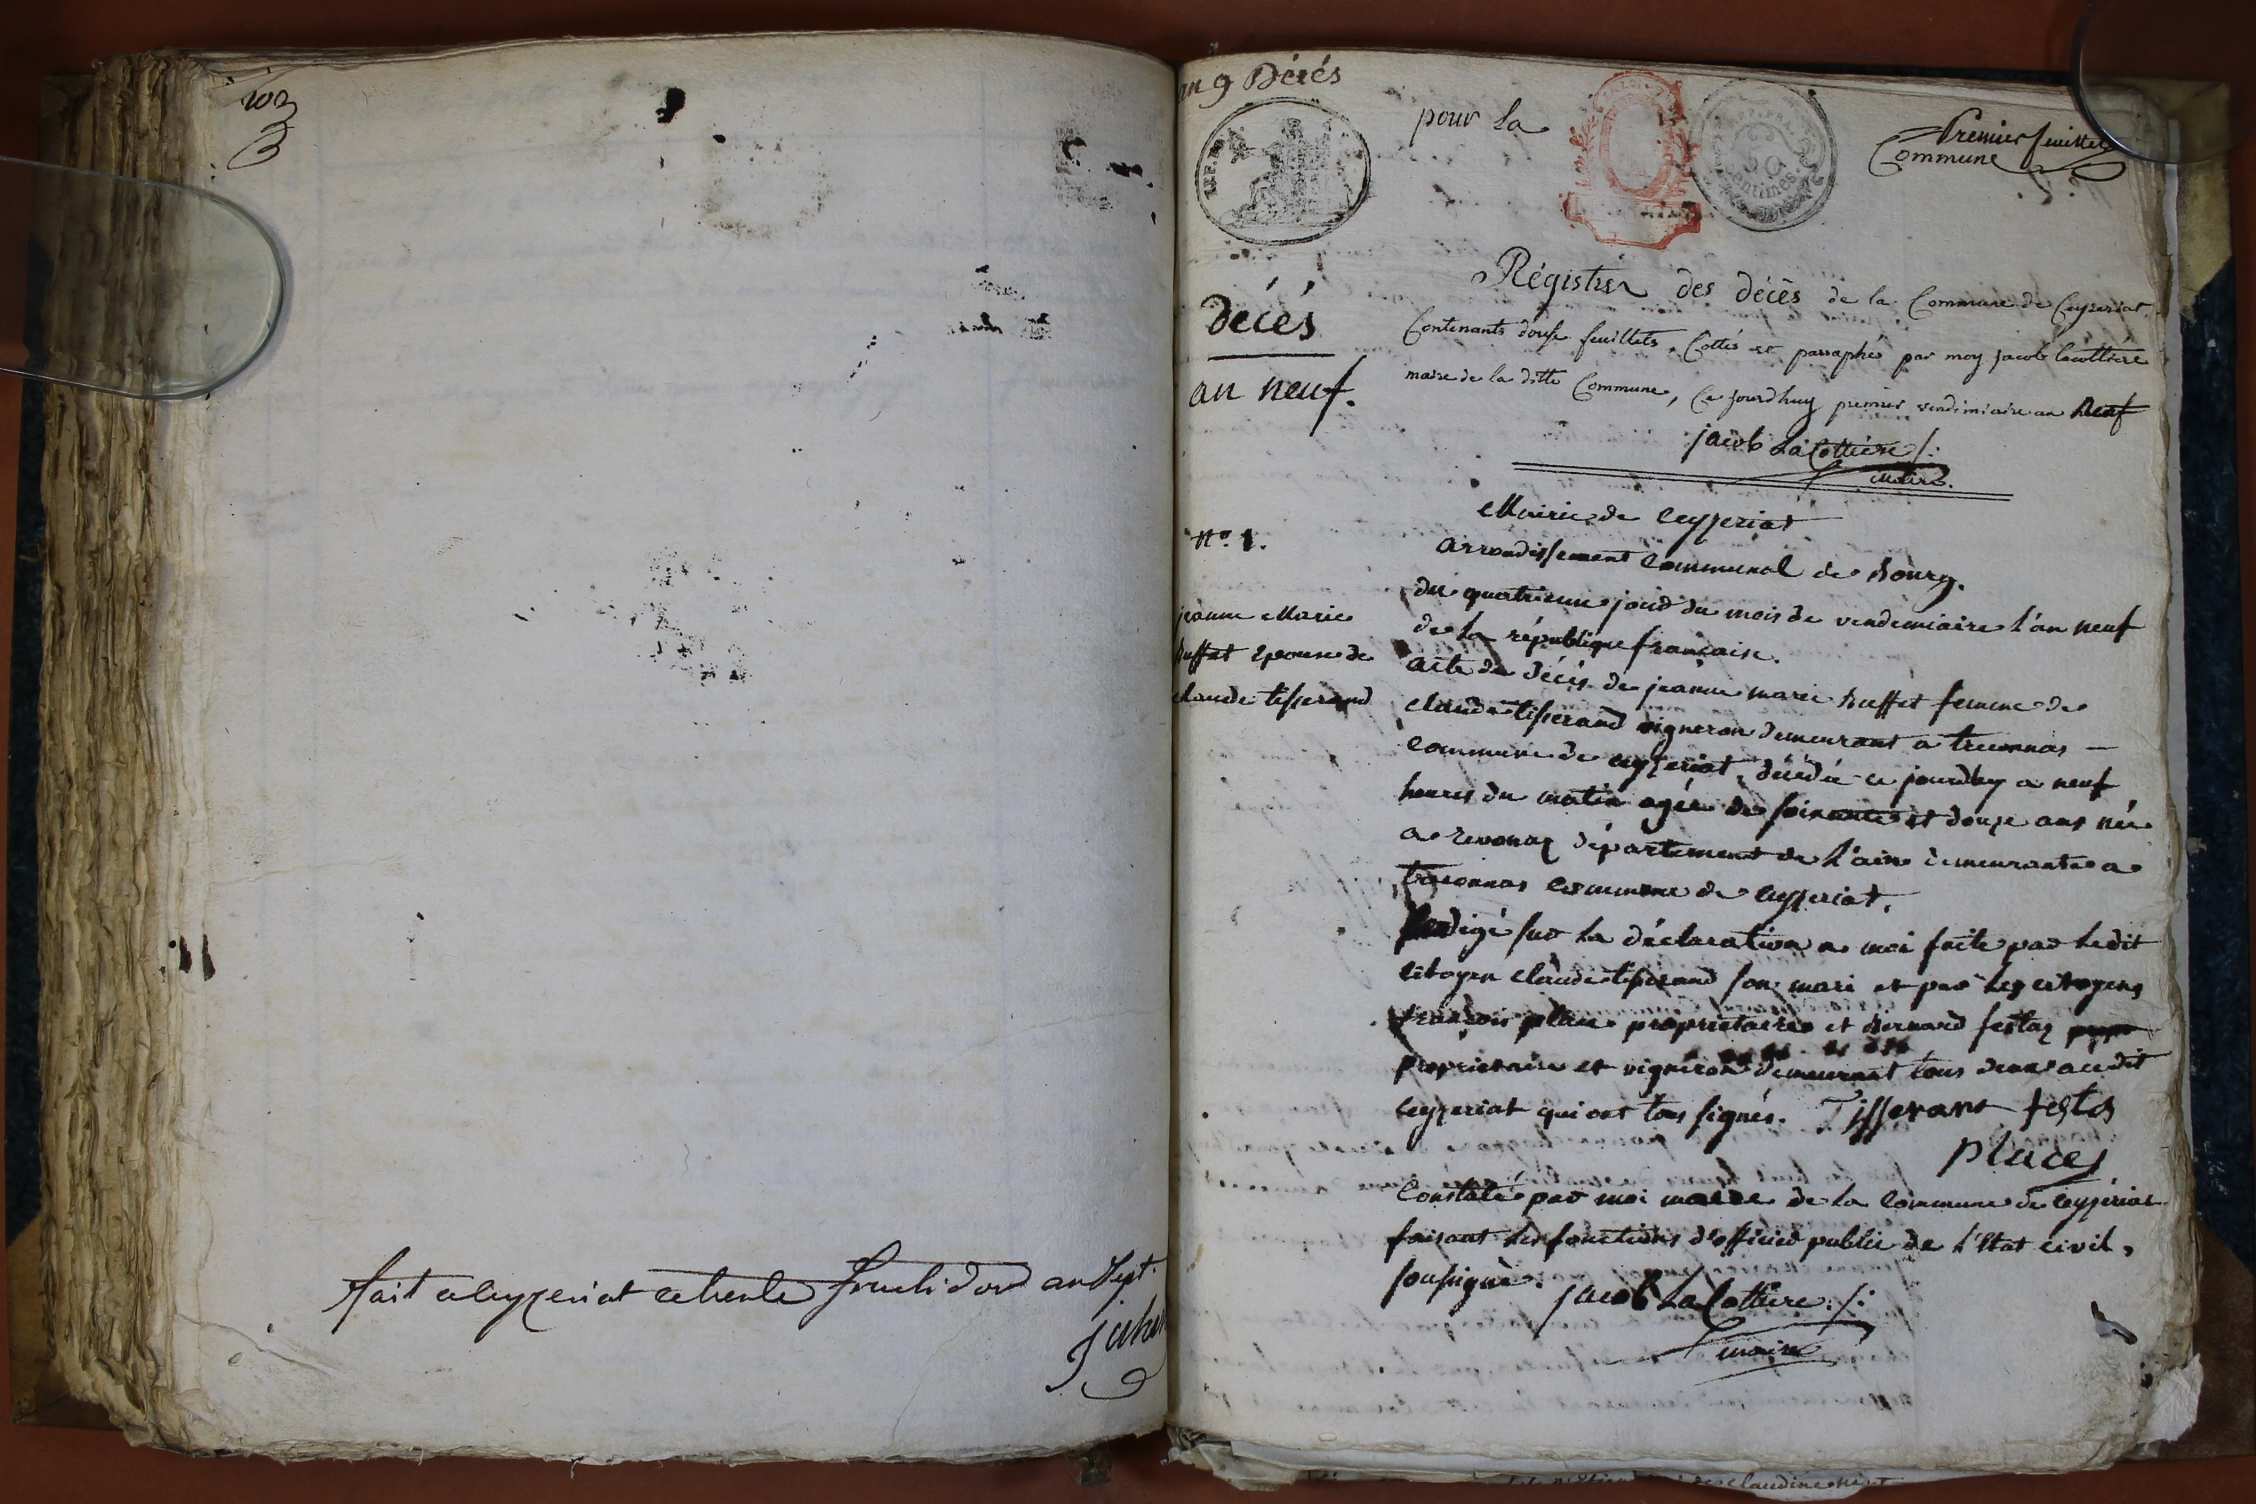 fait a Ceyzeriat ce trente fructidor an Sept.
an 9 Décés
pour la Commune
Premier feuillet
REP. FRA.
50 centimes
décés
an neuf.
Régistre des décès de la Commune de Ceyzeriat,
Contenants douse feuillets, Cottés et paraphés par moy jacob lacottiere
maire de la ditte Commune, Ce jourdhuy premier vendimiaire an Neuf
jacob La Cottiere /:
Maire.
Mairie de Ceyzeriat
Nº. 1.
arrondissement Communal de Bourg.
du quatrieme jour du mois de vendemiaire l'an neuf
de la république française.
jeanne Marie
Buffet epouse de
claude tisserand
acte de décés de jeanne marie Buffet femme de
claude tisserand vigneron demeurant a treconnas —
commune de ceyzeriat, décédée ce jourdhuy a neuf
heures du matin agée de soixante et douze ans née
a revonaz département de l'ain demeurante a
treconnas commune de ceyzeriat.
Redigé sur la déclaration a moi faite par ledit
citoyen claude tisserand son mari et par les citoyens
françois place propriétaire et Bernard festaz
propriétaire et vigneron demeurant tous deux audit
ceyzeriat qui ont tous signés. Tisserant festas
places
Constaté par moi maire de la commune de Ceyzériat
faisant les fonctions d'officier public de l'Etat civil,
soussigné. jacob La Cottiere. /:
maire